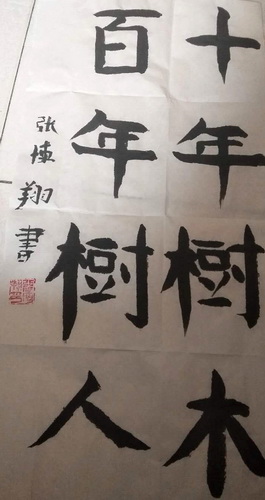 十年樹木
百年樹人
张栋翔書